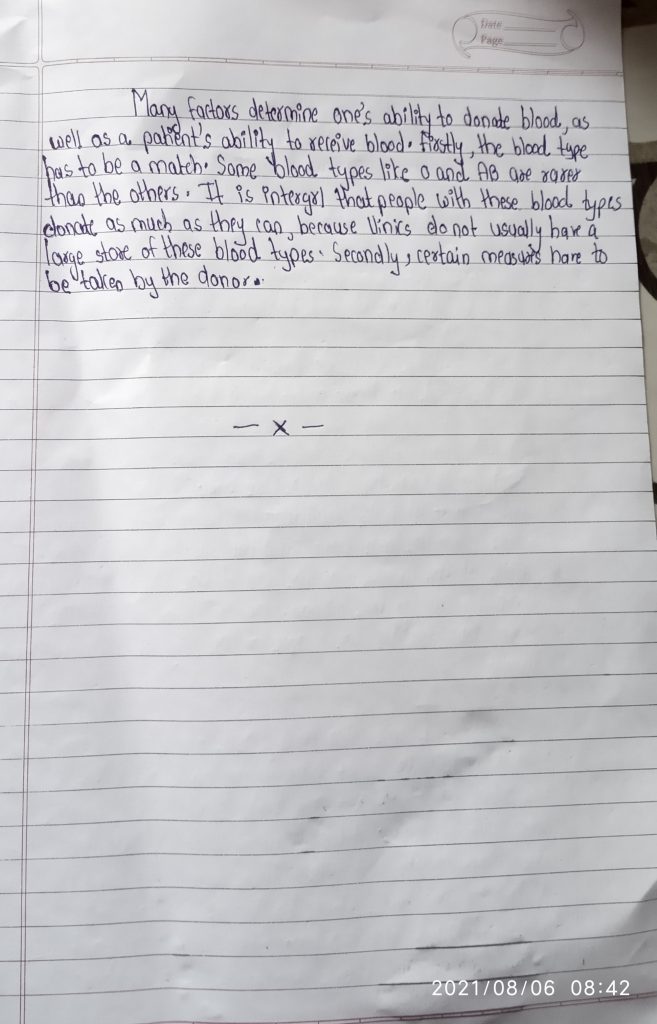 Date
Page
Many factors determine one's ability to donate blood, as
well as a patient's ability to receive blood. Firstly, the blood type
has to be a match. Some blood types like O and AB are rarer
than the others. It is intergrl that people with these blood types
donate as much as they can, because linics do not usually have a
large store of these blood types. Secondly, certain measurs have to
be taken by the donor..
— x —
2021/08/06 08:42